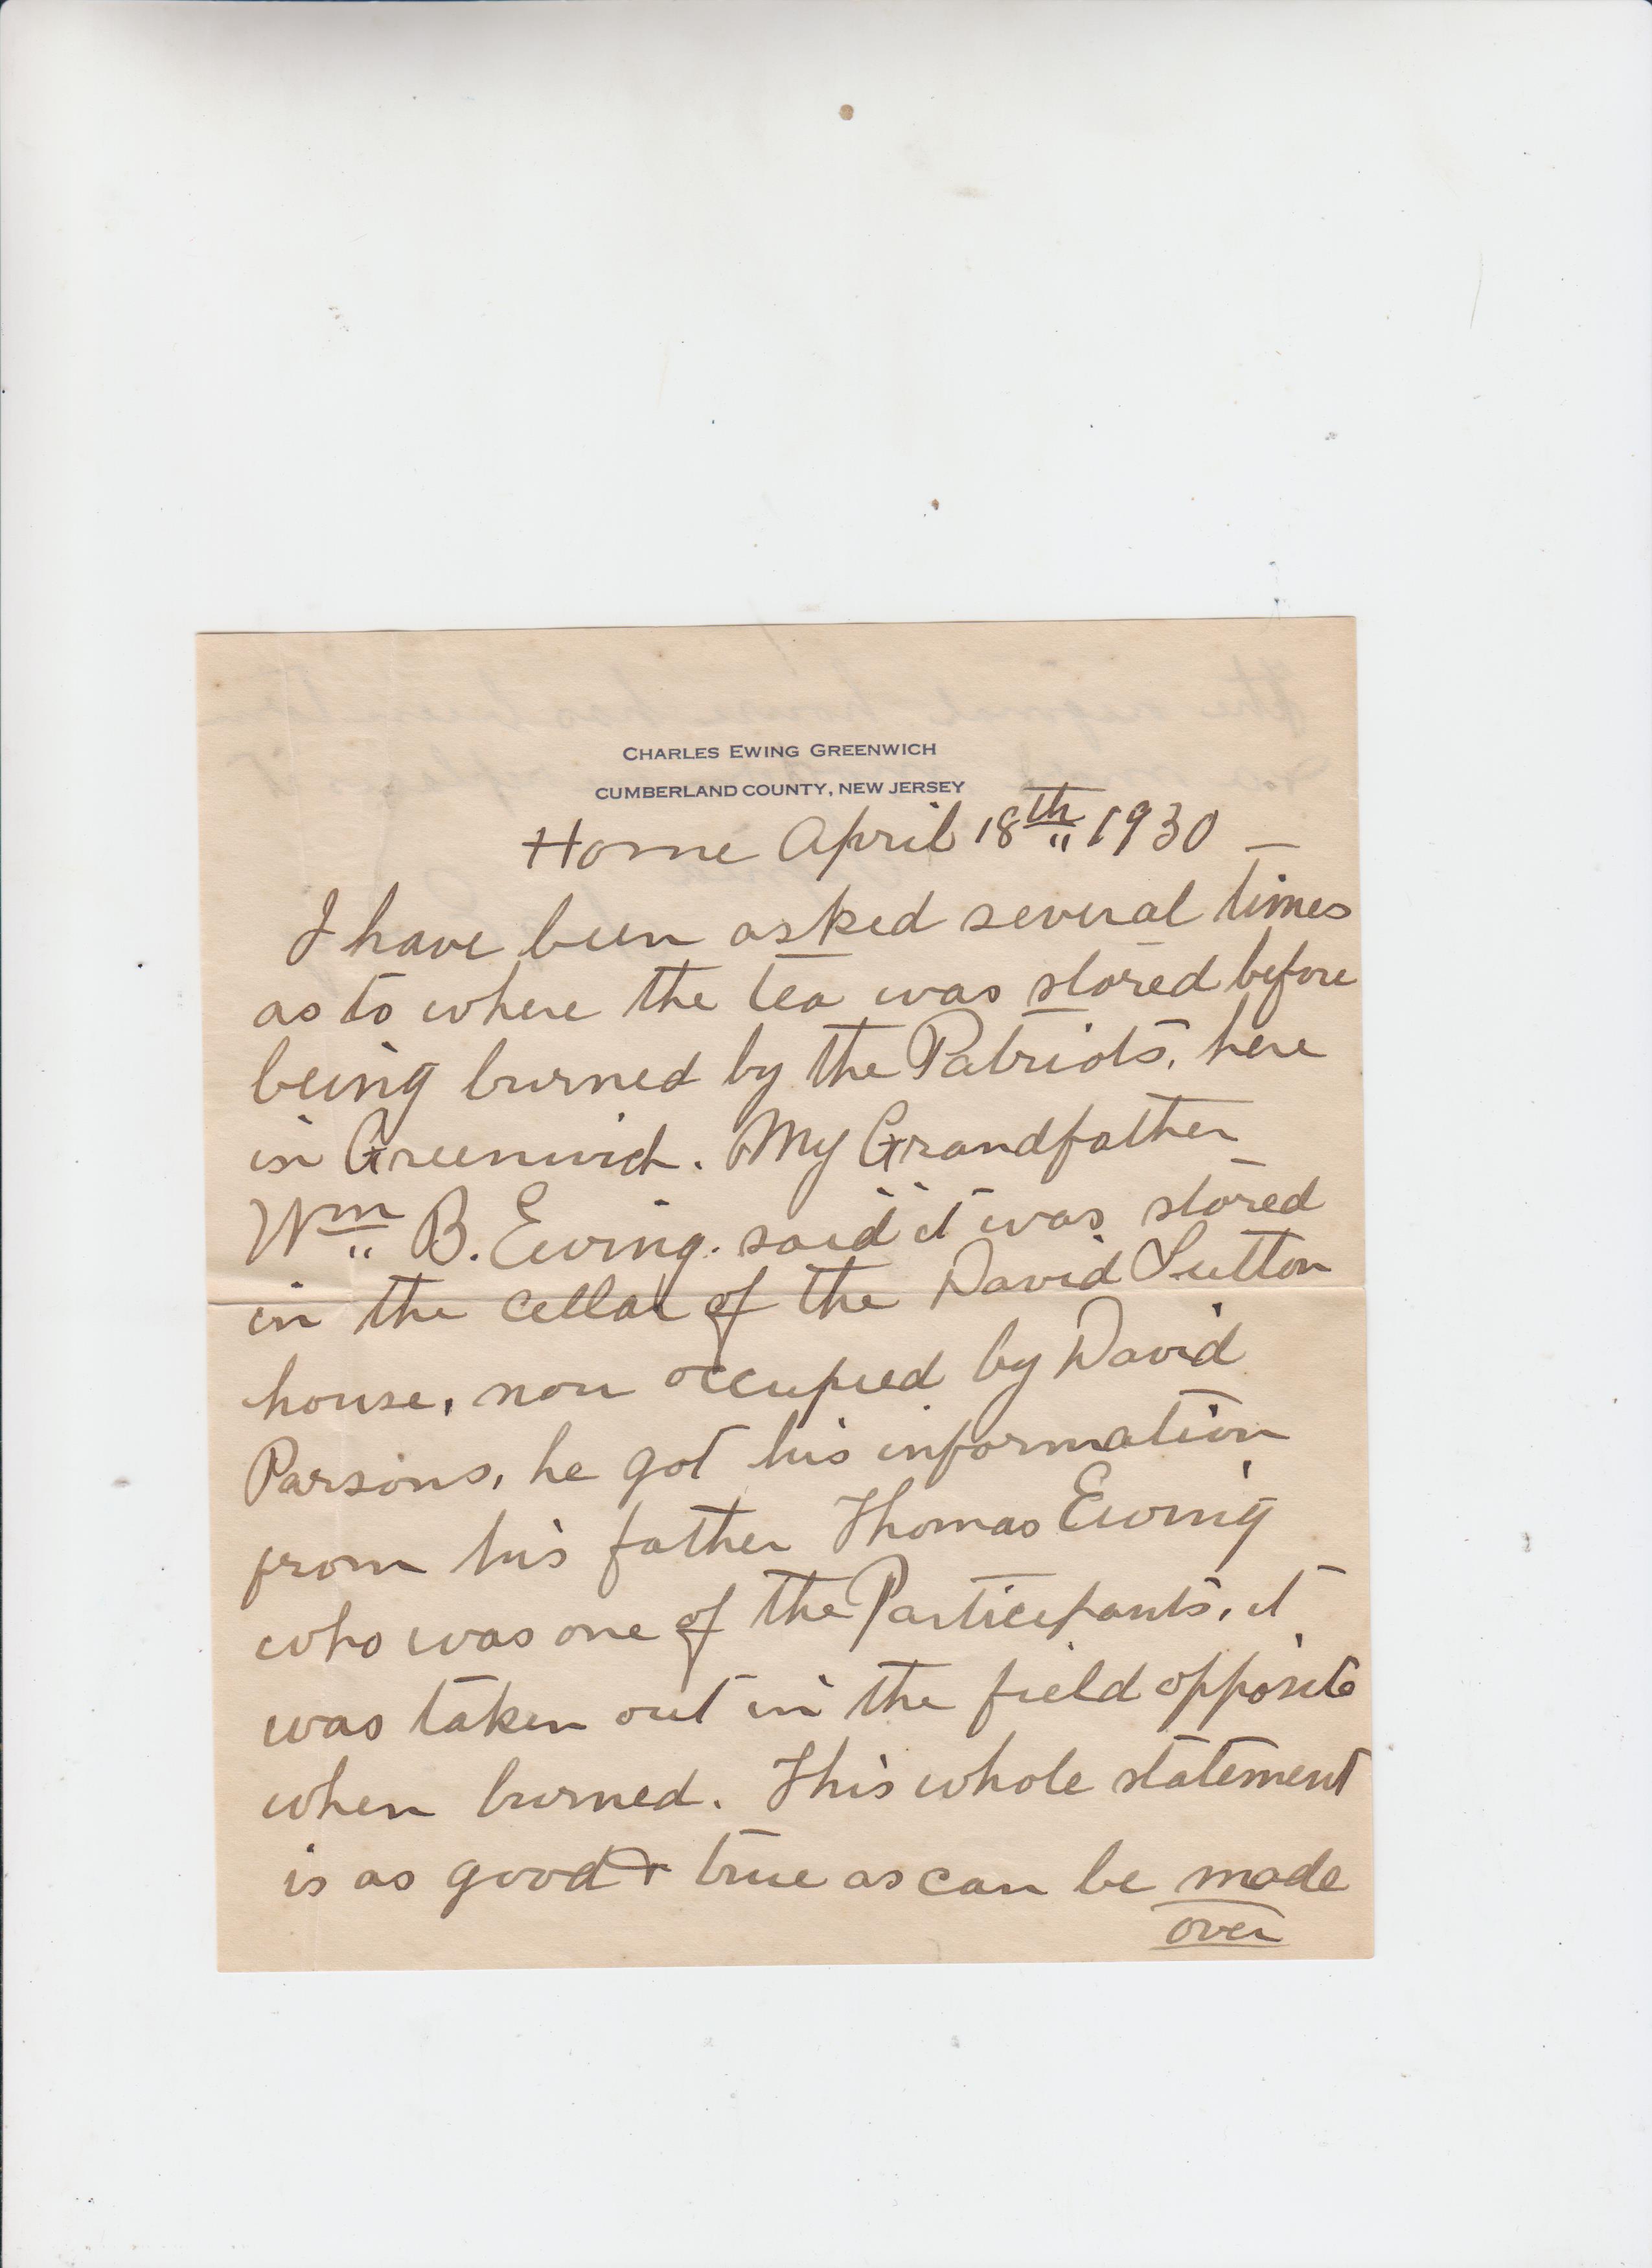 CHARLES EWING GREENWICH
CUMBERLAND COUNTY, NEW JERSEY
Home April 18th 1930 —
I have been asked several times
as to where the tea was stored before
being burned by the Patriots, here
in Greenwich. My Grandfather
Wm B. Ewing. said it was stored
in the cellar of the David Sutton
house, now occupied by David
Parsons, he got his information
from his father Thomas Ewing
who was one of the Participants, it
was taken out in the field opposite
when burned. This whole statement
is as good & true as can be made
over